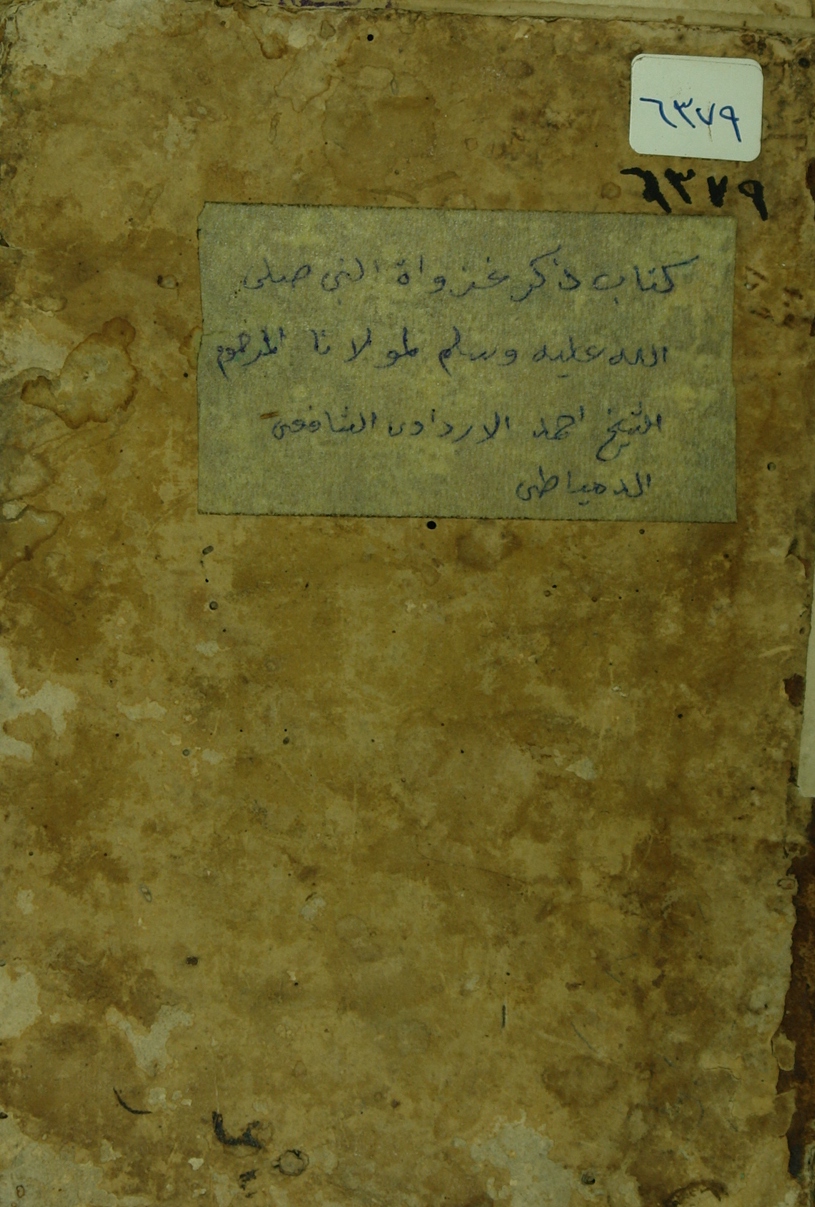 ٦٣٧٩
٦٣٧٩
كتاب ذكر غزواة النبي صلى
الله عليه وسلم لمولانا المرحوم
الشيخ احمد الاردادى الشافعى
الدمياطى